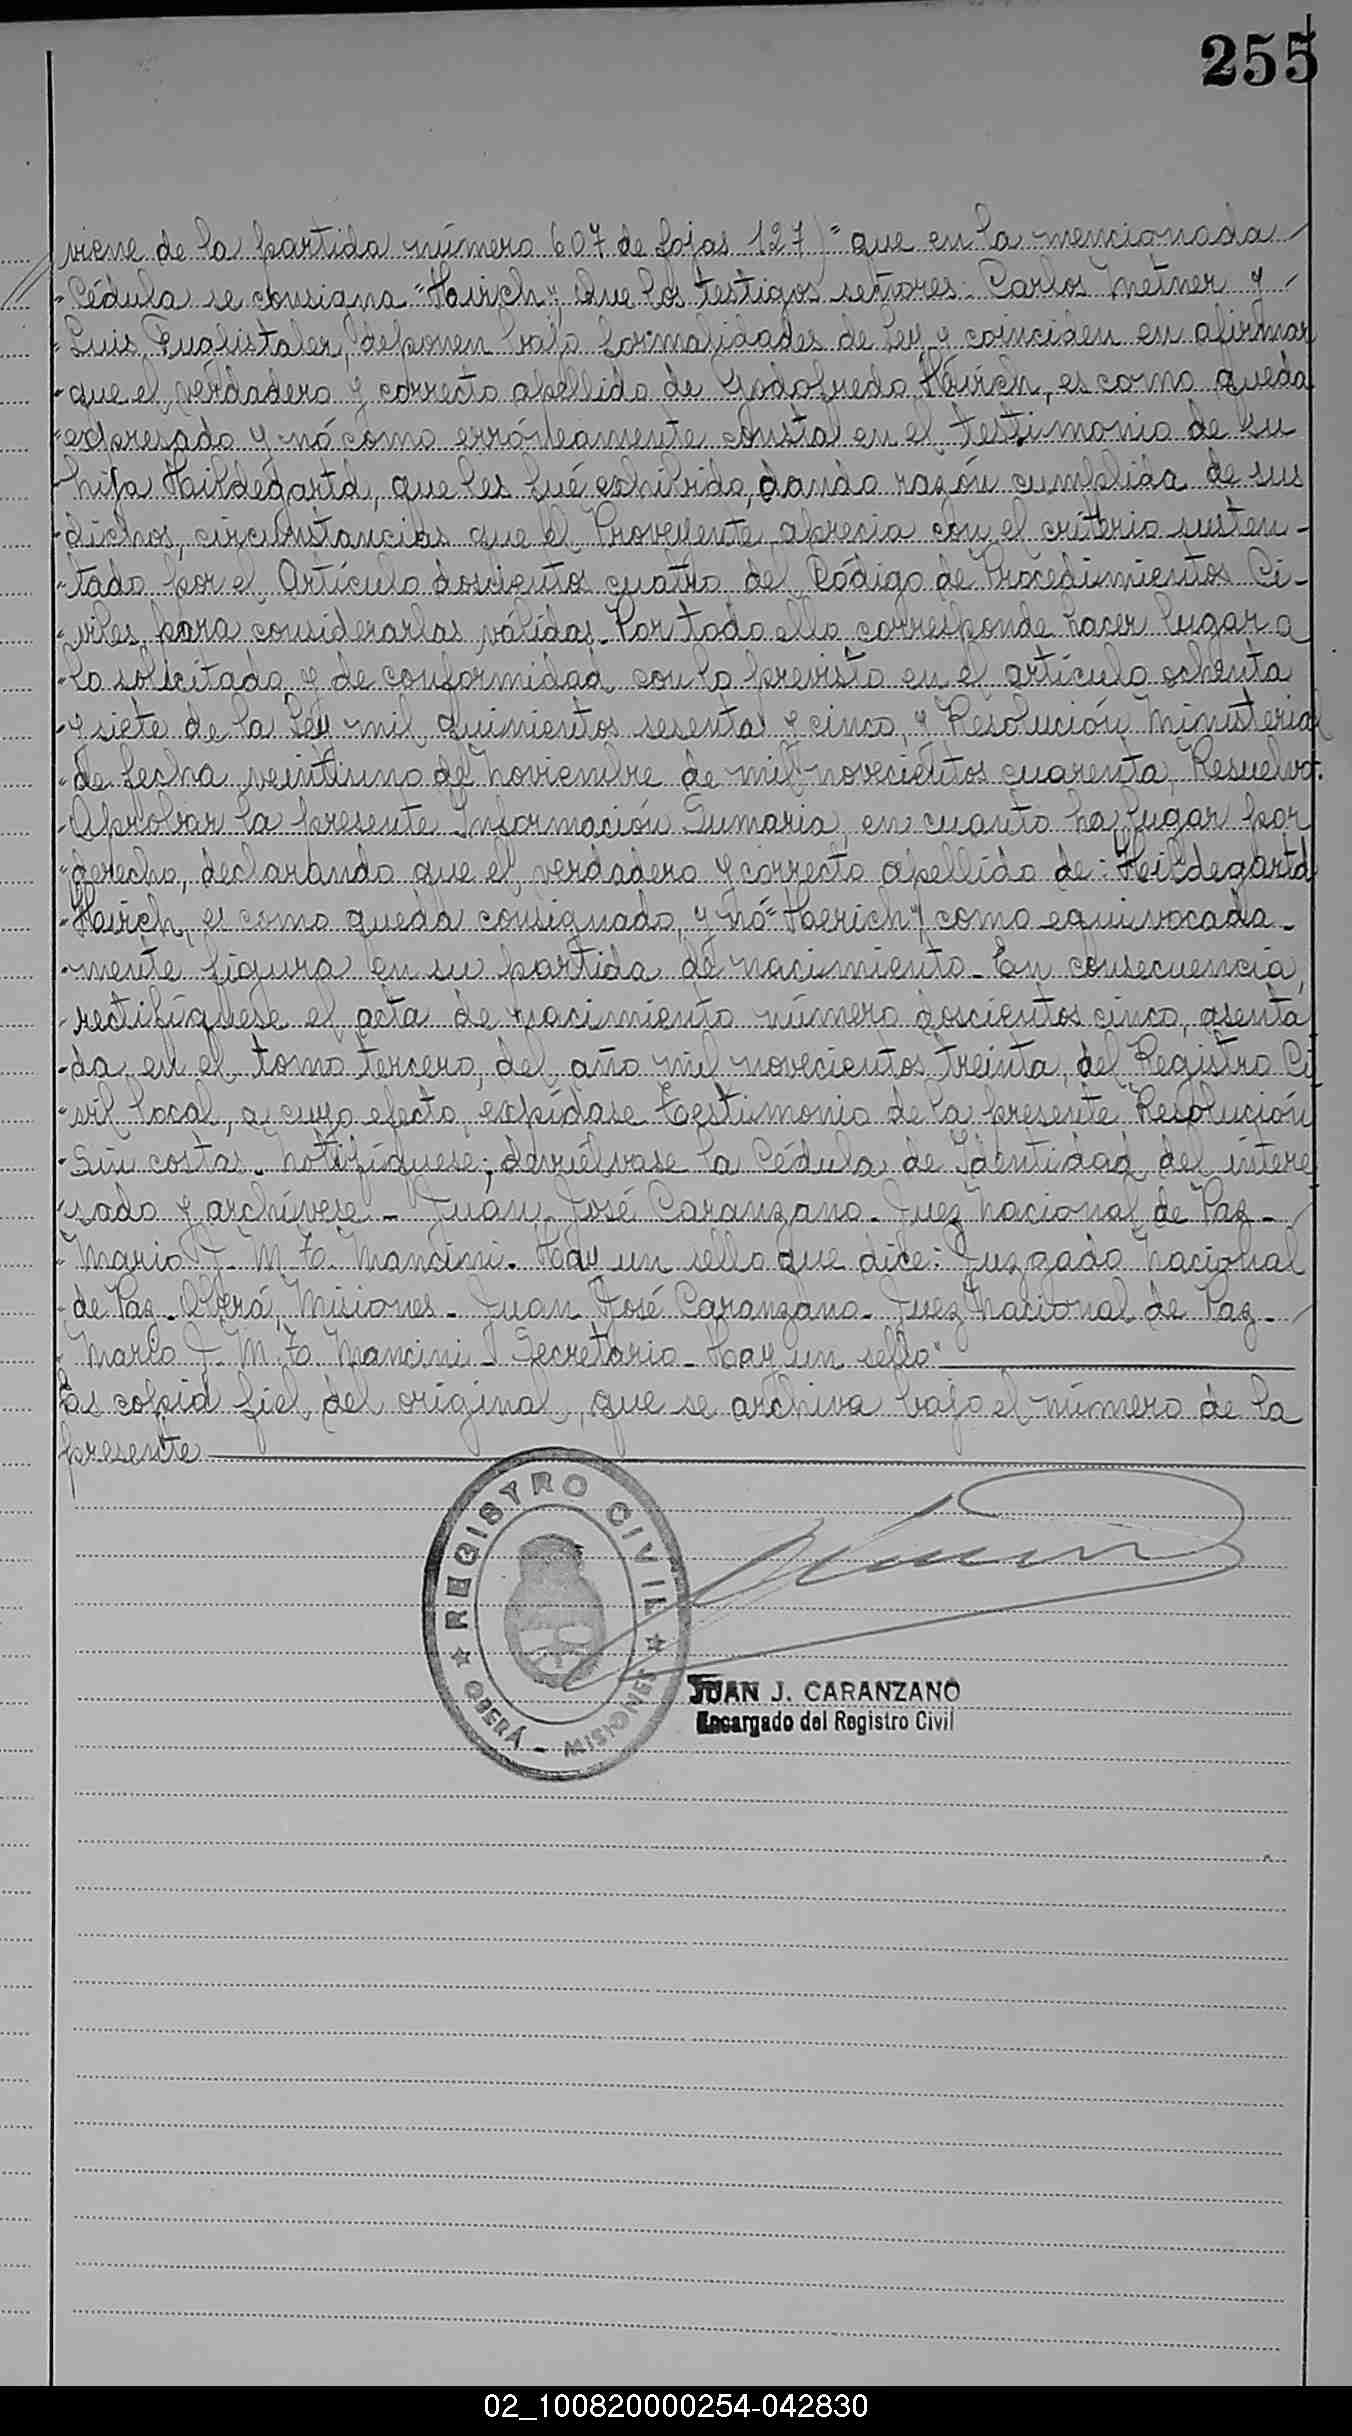 255
viene de la partida número 607 de fojas 127) "que en la mencionada
"Cédula se consigna "Hairch", Que los testigos señores: Carlos Metner y
"Luis, deponen bajo formalidades de Ley y coinciden en afirmar
"que el verdadero y correcto apellido de Godofredo Hairch, es como queda
"expresado y nó como erróneamente consta en el testimonio de su
"hija Hildegartd, que les fué exhibido, dando razón cumplida de sus
"dichos, circunstancias que el Proveyente aprecia con el criterio susten-
"tado por el Artículo doscientos cuatro del Código de Procedimientos Ci-
"viles, para considerarlas válidas. Por todo ello corresponde hacer lugar a
"lo solicitado y de conformidad con lo previsto en el artículo ochenta
"y siete de la Ley mil quinientos sesenta y cinco, y Resolución Ministerial
"de fecha veintiuno de Noviembre de mil novecientos cuarenta, Resuelvo:
"Aprobar la presente Información Sumaria, en cuanto ha lugar por
"derecho, declarando que el verdadero y correcto apellido de: Hildegartd
"Hairch, es como queda consignado, y nó "Haerich" como equivocada-
"mente figura en su partida de nacimiento. En consecuencia,
"rectifíquese el acta de nacimiento número doscientos cinco, asenta
"da en el tomo tercero, del año mil novecientos treinta, del Registro Ci
"vil local, a cuyo efecto, expídase Testimonio de la presente Resolución
"Sin costas. Notifíquese; devuélvase la Cédula de Identidad del intere
"sado y archívese. - Juan José Caranzano. Juez Nacional de Paz -
"Mario J. M. T. Mancini. Hay un sello que dice: Juzgado Nacional
"de Paz. Oberá, Misiones - Juan José Caranzano. Juez Nacional de Paz -
"Mario J. M. T. Mancini - Secretario - Hay un sello"
Es copia fiel del original, que se archiva bajo el número de la
presente
REGISTRO CIVIL
OBERÁ - MISIONES
JUAN J. CARANZANO
Encargado del Registro Civil
02_100820000254-042830